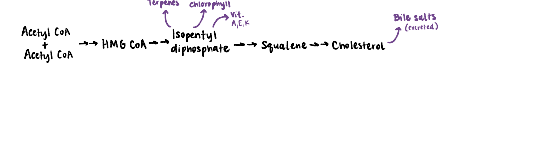 Terpenes chlorophyll
Vit.
A,E,K
Bile salts
(excreted)
Acetyl CoA
+
Acetyl CoA
→→ HMG CoA →→
Isopentyl
diphosphate
→→ Squalene →→ Cholesterol